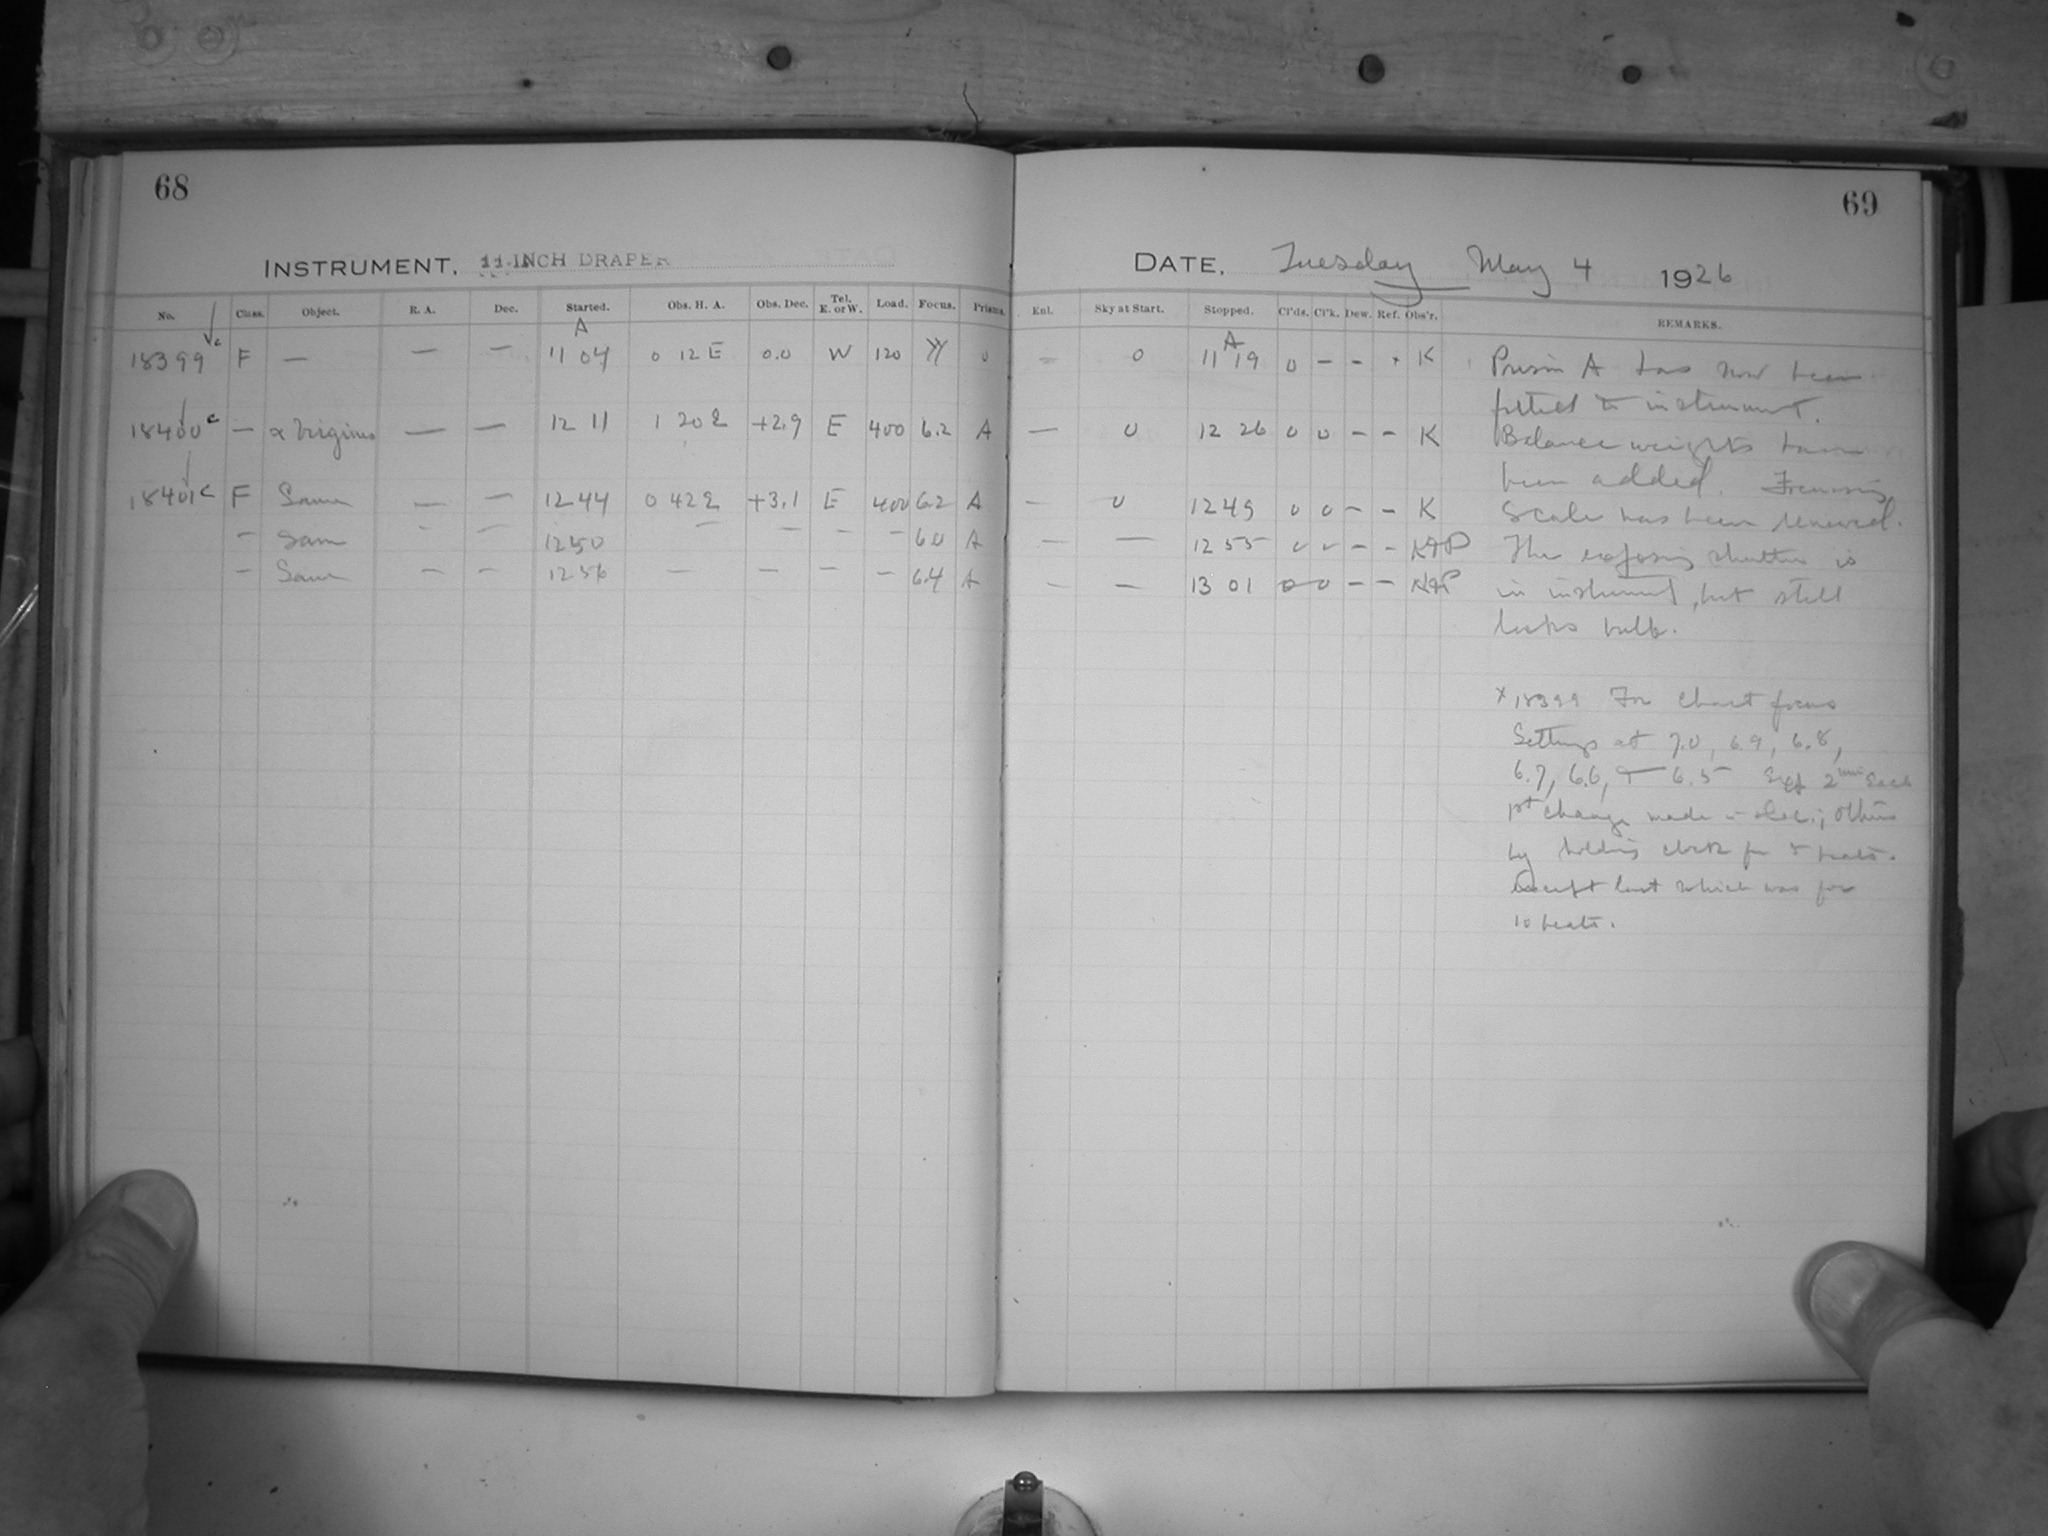 68
INSTRUMENT. 11-INCH DRAPER
No. Class. Object. R. A. Dec. Started. Obs. H. A. Obs. Dec. Tel. E. or W. Load. Focus. Prisms.
A
18399 c F — — — 11 04 0 12 E 0.0 W 120 0
18400 c — α Virginis — — 12 11 1 20 E +2.9 E 400 6.2 A
18401 c F Same — — 12 44 0 42 E +3.1 E 400 6.2 A
— Same - — 12 50 — — — — 6.0 A
— Same — — 12 56 — — — — 6.4 A
69
DATE. Tuesday May 4 1926
Enl. Sky at Start. Stopped. Cl'ds. Cl'k. Dew. Ref. Obs'r. REMARKS.
A
— 0 11 19 0 — — K
— 0 12 26 0 0 — — K
— 0 12 49 0 0 — — K
— — 12 55 — —
— — 13 01 0 0 — —
Prism A has now been
fitted to instrument.
Balance weights have
been added. Focussing
Scale has been renewed.
The exposing shutter is
in instrument, but still
lacks bulb.
x 18399 For Chart focus
Settings at 7.0, 6.9, 6.8,
6.7, 6.6, + 6.5 Exp 2 min Each
1st change made in Dec.; others
by holding clock for 5 beats.
Except last which was for
10 beats.